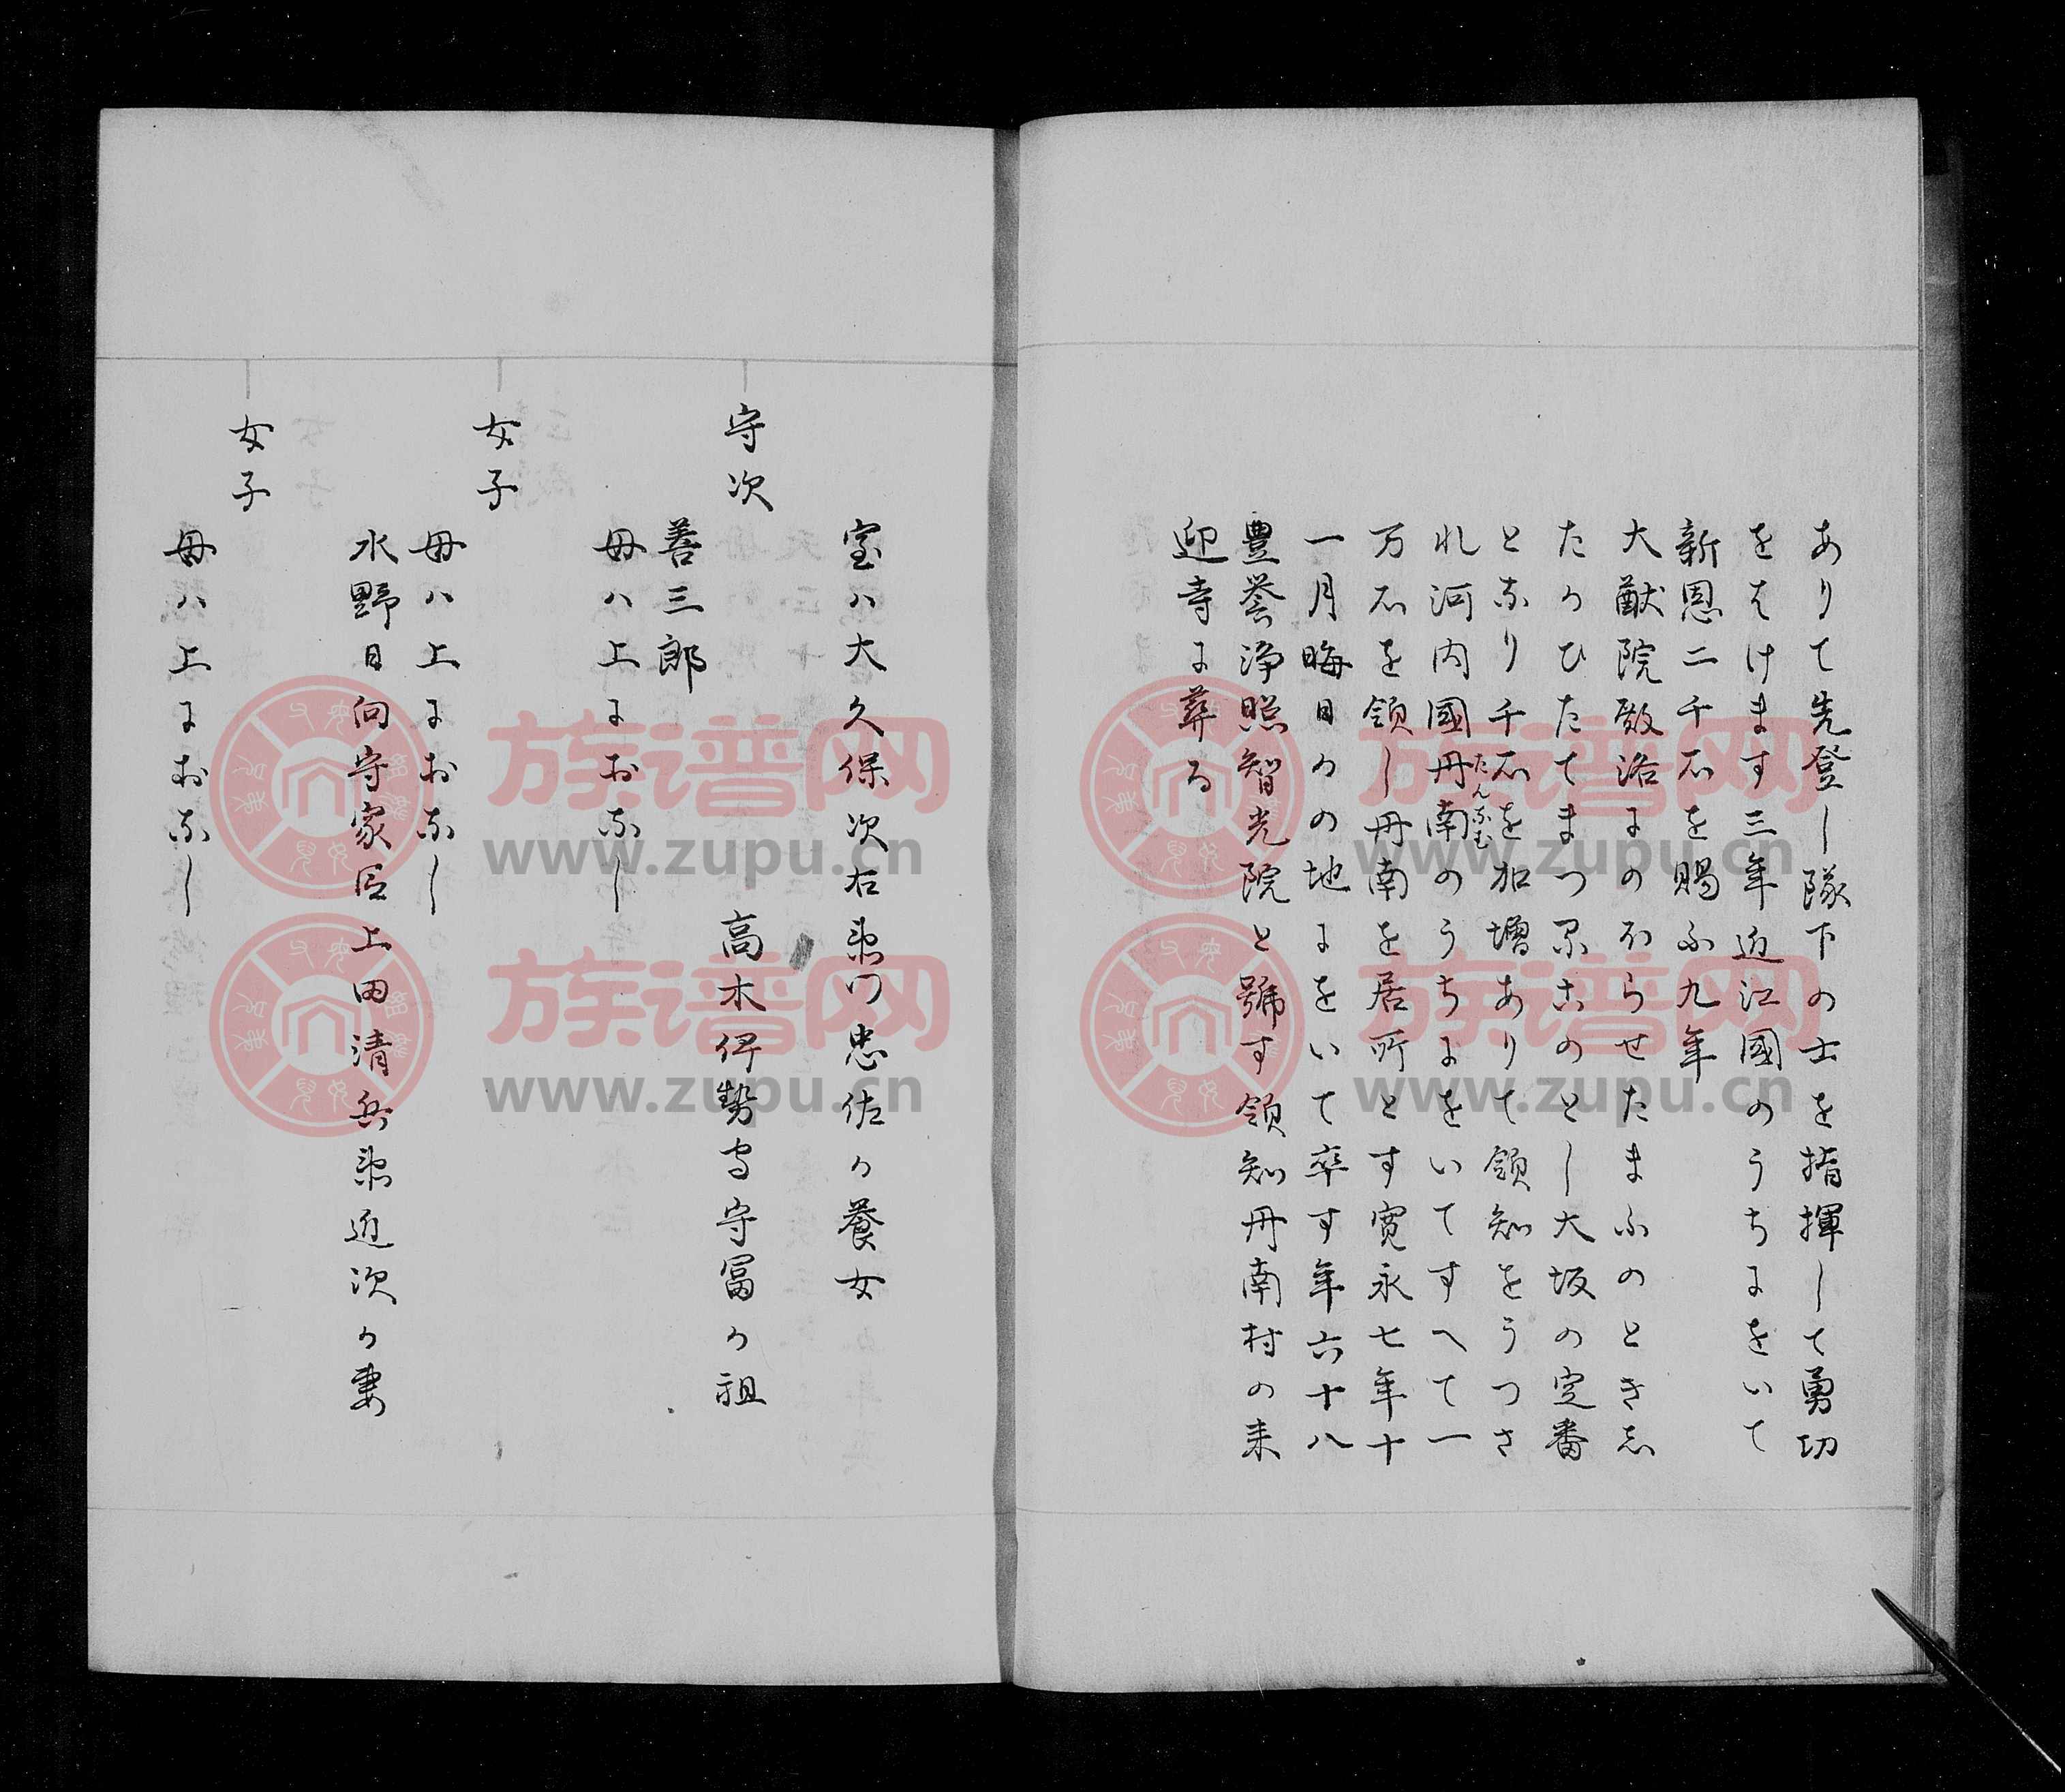 ありて先登し隊下の士を指揮して勇功
をはけます三年近江國のうちにをいて
新恩二千石を賜ふ九年
大猷院殿洛にのほらせたまふのとき志
たかひたてまつる此のとし大坂の定番
となり千石を加増ありて領知をうつさ
れ河内國丹南のうちにをいてすへて一
たんなむ
万石を領し丹南を居所とす寛永七年十
一月晦日かの地にをいて卒す年六十八
豊誉浄照智光院と號す領知丹南村の来
迎寺に葬る
室ハ大久保次右衛門忠佐か養女
守次
高木伊勢守守富か祖
善三郎
母ハ上におなし
女子
母ハ上におなし
水野日向守家臣上田清兵衛近次か妻
女子
母ハ上におなし
族谱网
www.zupu.cn
族谱网
www.zupu.cn
族谱网
www.zupu.cn
族谱网
www.zupu.cn